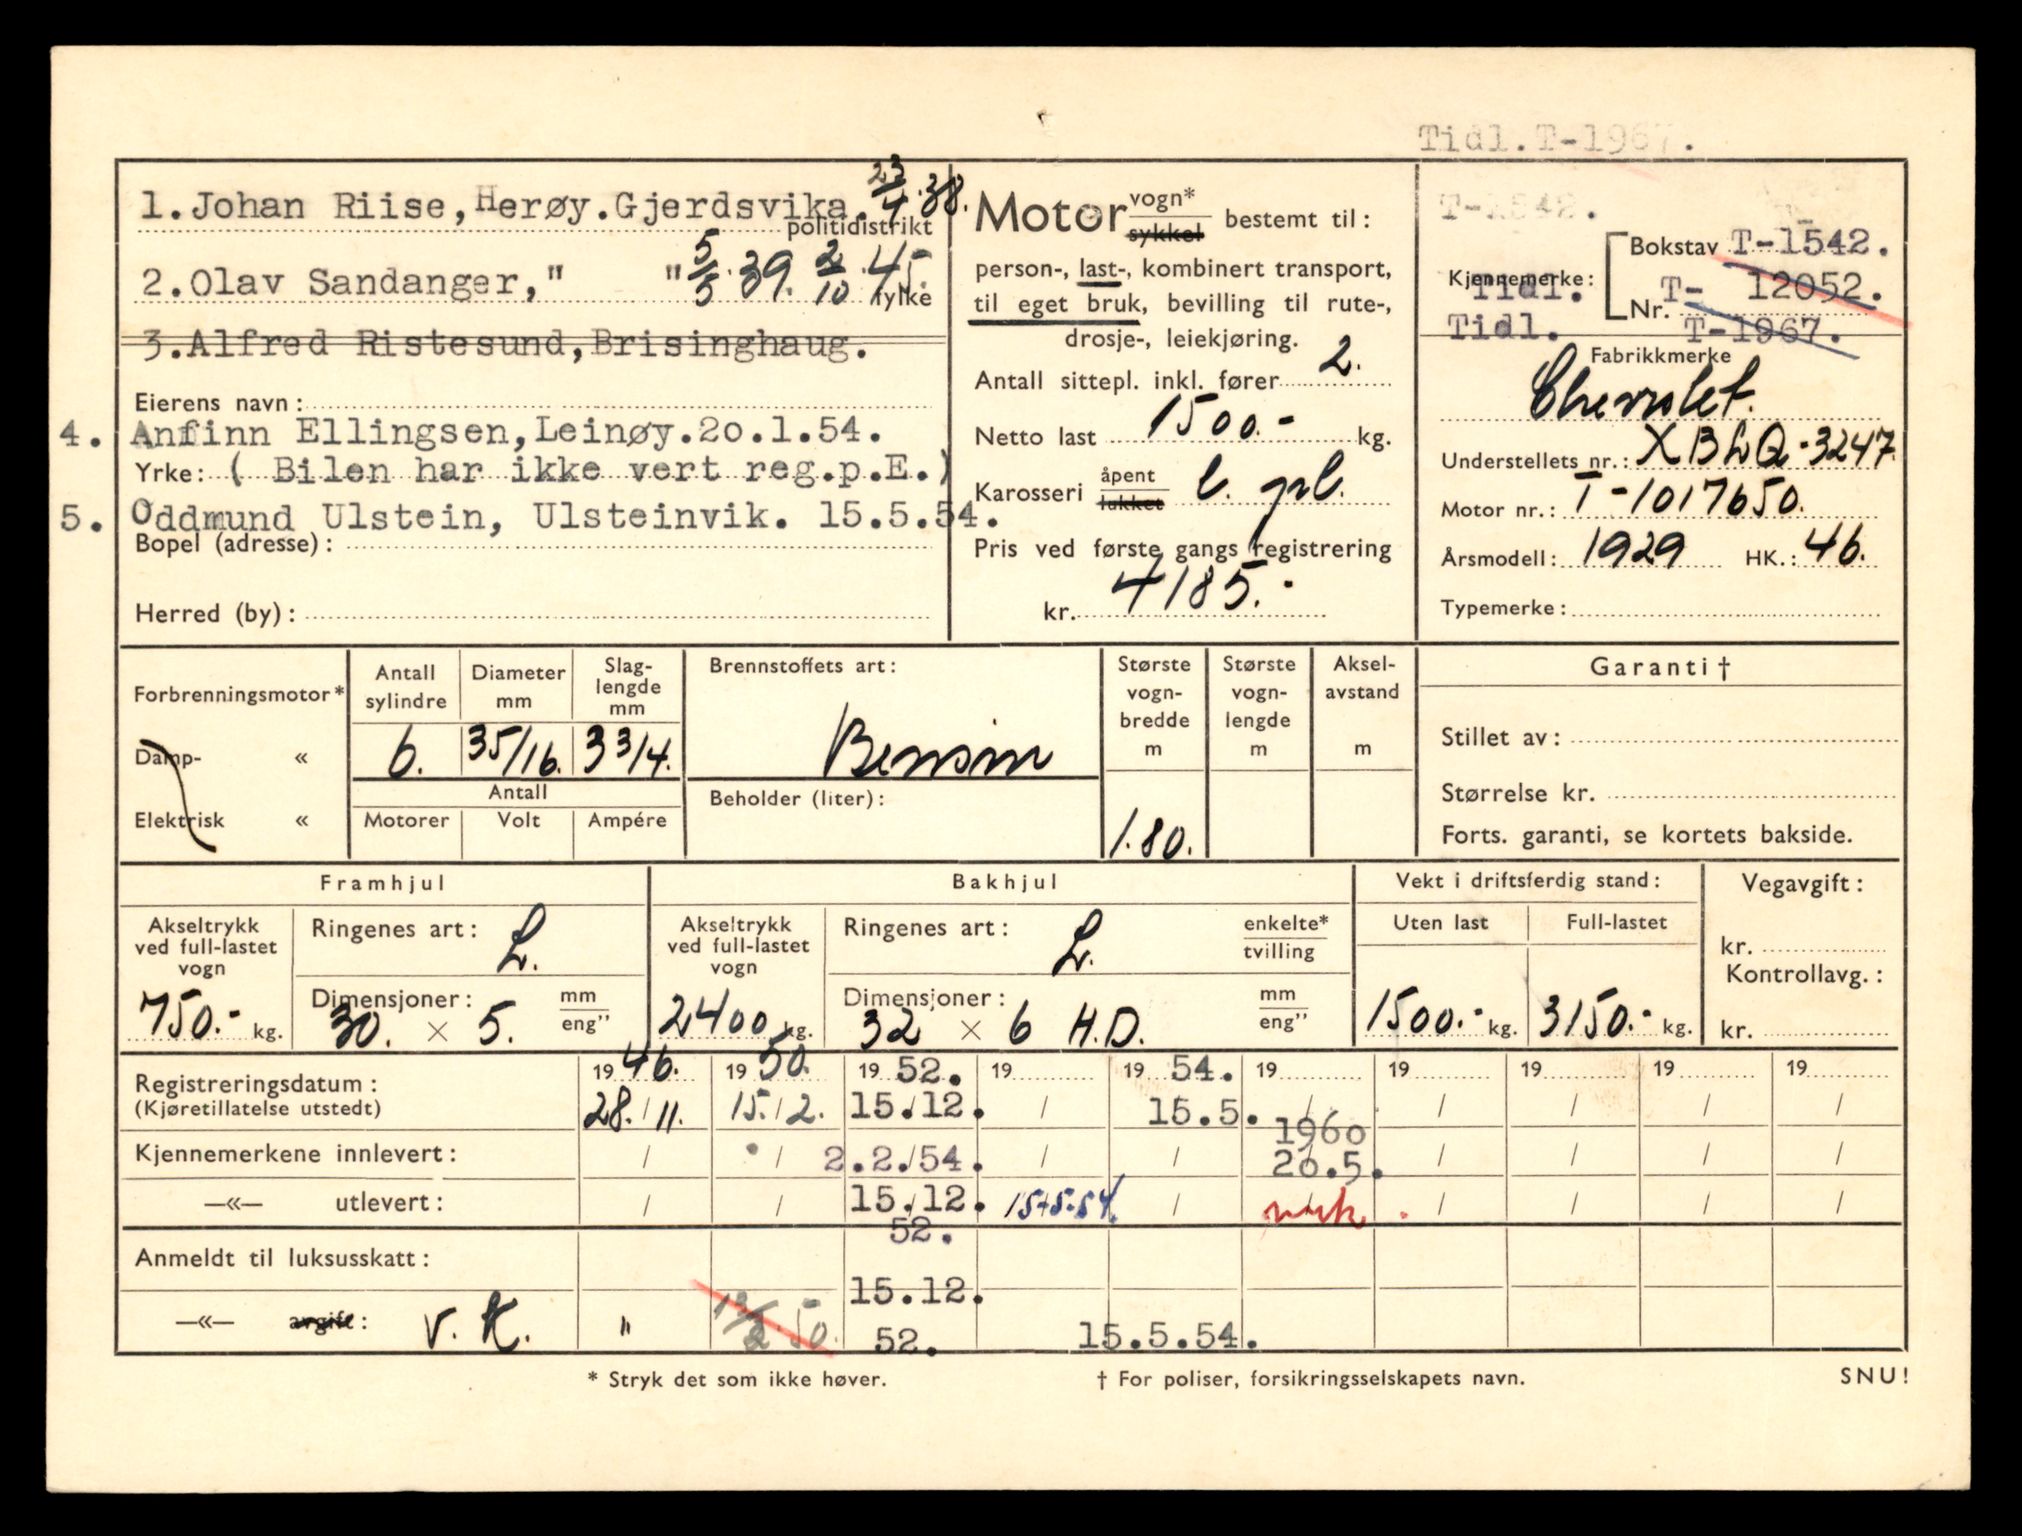 Tidl.T-1967.
1.Johan Riise,Herøy.Gjerdsvika. 23/4.38.
politidistrikt
2.Olav Sandanger," " 5/5.39. 2/10.45.
fylke
3.Alfred Ristesund,Brisinghaug.
Eierens navn:
4. Anfinn Ellingsen,Leinøy.20.1.54.
Yrke: ( Bilen har ikke vert reg.p.E.)
5. Oddmund Ulstein, Ulsteinvik. 15.5.54.
Bopel (adresse):
Herred (by):
Motor vogn* sykkel bestemt til:
person-, last-, kombinert transport,
til eget bruk, bevilling til rute-,
drosje-, leiekjøring.
Antall sittepl. inkl. fører 2.
Netto last 1500.- kg.
Karosseri åpent lukket
Pris ved første gangs registrering
kr. 4185.-
T-1542.
Bokstav T-1542.
Kjennemerke: Tidl.
Nr. T- 12052.
Tidl. T-1967.
Fabrikkmerke
Chevrolet.
Understellets nr.: XBLQ-3247.
Motor nr.: T-1017650.
Årsmodell: 1929 HK.: 46.
Typemerke:
Forbrenningsmotor*
Damp- «
Elektrisk «
Antall sylindre
6.
Diameter mm
35/16.
Slag-lengde mm
3 3/4.
Antall
Motorer Volt Ampére
Brennstoffets art:
Bensin
Beholder (liter):
Største vogn-bredde m
1.80.
Største vogn-lengde m
Aksel-avstand m
Garanti †
Stillet av:
Størrelse kr.
Forts. garanti, se kortets bakside.
Framhjul
Akseltrykk ved full-lastet vogn
750.- kg.
Ringenes art: L.
Dimensjoner: mm eng”
30. × 5.
Bakhjul
Akseltrykk ved full-lastet vogn
2400 kg.
Ringenes art: L. enkelte* tvilling
Dimensjoner: mm eng”
32 × 6 H.D.
Vekt i driftsferdig stand:
Uten last Full-lastet
1500.- kg. 3150.- kg.
Vegavgift:
kr.
Kontrollavg.:
kr.
19 46. 19 50. 19 52. 19 19 54. 19 19 19 19 19
Registreringsdatum:
(Kjøretillatelse utstedt) 28./11. 15./2. 15./12. / 15.5. / / / / /
1960
Kjennemerkene innlevert: / / 2.2./54. / / 20.5. / / / /
—«— utlevert: / / 15./12. 15-5-54. / / / / /
52.
Anmeldt til luksusskatt:
15.12.
—«— avgift: V. K. " 13/2.50. 52. 15.5.54.
* Stryk det som ikke høver. † For poliser, forsikringsselskapets navn. SNU!